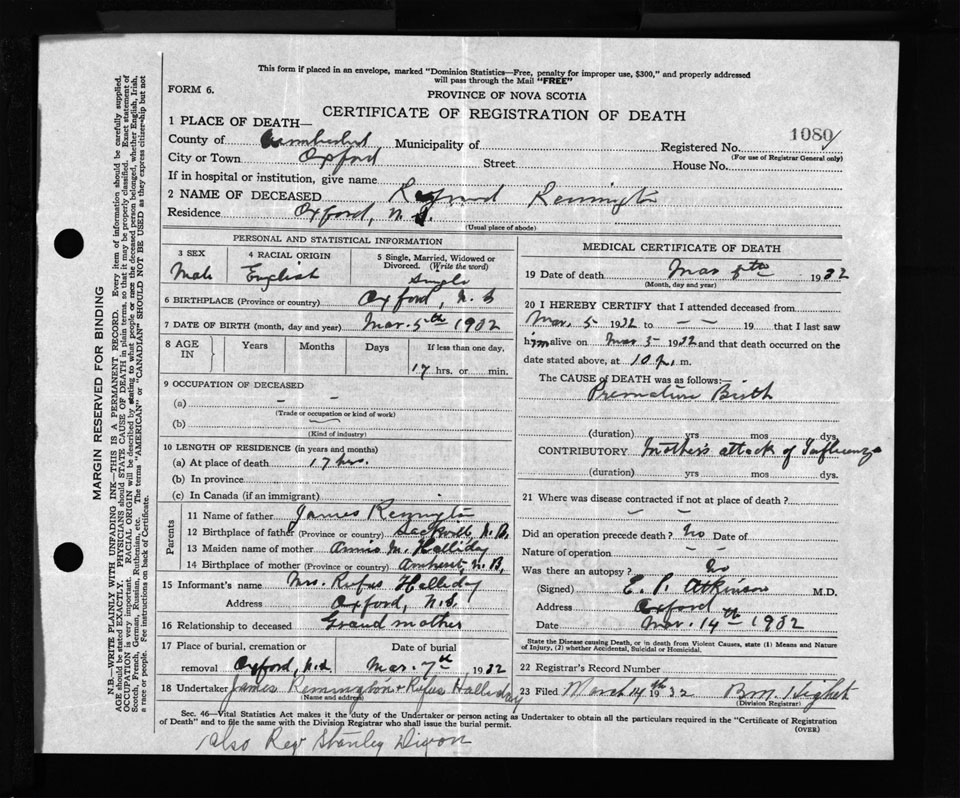 This form if placed in an envelope, marked "Dominion Statistics—Free, penalty for improper use, $300," and properly addressed
will pass through the Mail "FREE"
FORM 6.
PROVINCE OF NOVA SCOTIA
CERTIFICATE OF REGISTRATION OF DEATH
1 PLACE OF DEATH—
County of Cumberland Municipality of Registered No. 1080
(For use of Registrar General only)
City or Town Oxford Street House No.
If in hospital or institution, give name
2 NAME OF DECEASED Remington
Residence Oxford, N.S.
(Usual place of abode)
PERSONAL AND STATISTICAL INFORMATION
3 SEX 4 RACIAL ORIGIN 5 Single, Married, Widowed or Divorced. (Write the word)
Male English Single
6 BIRTHPLACE (Province or country) Oxford, N.S
7 DATE OF BIRTH (month, day and year) Mar. 5th 1932
8 AGE IN Years Months Days If less than one day,
17 hrs. or min.
9 OCCUPATION OF DECEASED
(a) – –
(Trade or occupation or kind of work)
(b)
(Kind of industry)
10 LENGTH OF RESIDENCE (in years and months)
(a) At place of death 17 hrs.
(b) In province
(c) In Canada (if an immigrant)
Parents
11 Name of father James Remington
12 Birthplace of father (Province or country) Sackville, N.B.
13 Maiden name of mother Annie M. Halliday
14 Birthplace of mother (Province or country) Amherst, N.B.
15 Informant's name Mrs. Rufus Halliday
Address Oxford, N.S.
16 Relationship to deceased Grand mother
17 Place of burial, cremation or Date of burial
removal Oxford, N.S. Mar. 7th 1932
18 Undertaker James Remington + Rufus Halliday
(Name and address)
MEDICAL CERTIFICATE OF DEATH
19 Date of death Mar 5th 1932
(Month, day and year)
20 I HEREBY CERTIFY that I attended deceased from
Mar. 5 1932 to – – 19 that I last saw
him alive on Mar 5 1932 and that death occurred on the
date stated above, at 10 P. m.
The CAUSE of DEATH was as follows:—
Premature Birth
(duration) yrs mos dys.
CONTRIBUTORY Mother's attack of Influenza
(duration) yrs. mos. dys.
21 Where was disease contracted if not at place of death?
– –
Did an operation precede death? No Date of
Nature of operation – –
Was there an autopsy? No
(Signed) E. P. Atkinson M.D.
Address Oxford
Date Mar. 14th 1932
State the Disease causing Death, or in death from Violent Causes, state (1) Means and Nature
of Injury, (2) whether Accidental, Suicidal or Homicidal.
22 Registrar's Record Number
23 Filed March 14th 1932
(Division Registrar)
Sec. 46—Vital Statistics Act makes it the duty of the Undertaker or person acting as Undertaker to obtain all the particulars required in the "Certificate of Registration
of Death" and to file the same with the Division Registrar who shall issue the burial permit.
(OVER)
also Rev Stanley Dixon
MARGIN RESERVED FOR BINDING
N.B.—WRITE PLAINLY WITH UNFADING INK—THIS IS A PERMANENT RECORD. Every item of information should be carefully supplied.
AGE should be stated EXACTLY. PHYSICIANS should STATE CAUSE OF DEATH in plain terms, so that it may be properly classified. Exact statement of
OCCUPATION is very important. RACIAL ORIGIN will be described by stating to what people or race the deceased person belonged, whether English, Irish,
Scotch, French, German, Russian, Ruthenian, etc. The terms "AMERICAN" or "CANADIAN" SHOULD NOT BE USED as they express citizenship but not
a race or people. Fee instructions on back of Certificate.